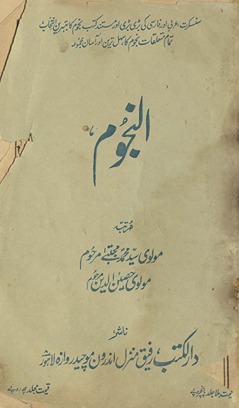 سنسکرت، عربی اور فارسی کی بڑی بڑی اور مستند کتب نجوم کا بہترین انتخاب
تمام متعلقات نجوم کا سہل ترین اور آسان مجموعہ
النجوم
مرتبہ
مولوی سید محمد مجتبےٰ مرحوم
مولوی حصین الدین مرحوم
ناشر
دار الکتب، رفیق منزل اندرون موچیدروازہ لاہور
قیمت مجلد
قیمت بلا جلد